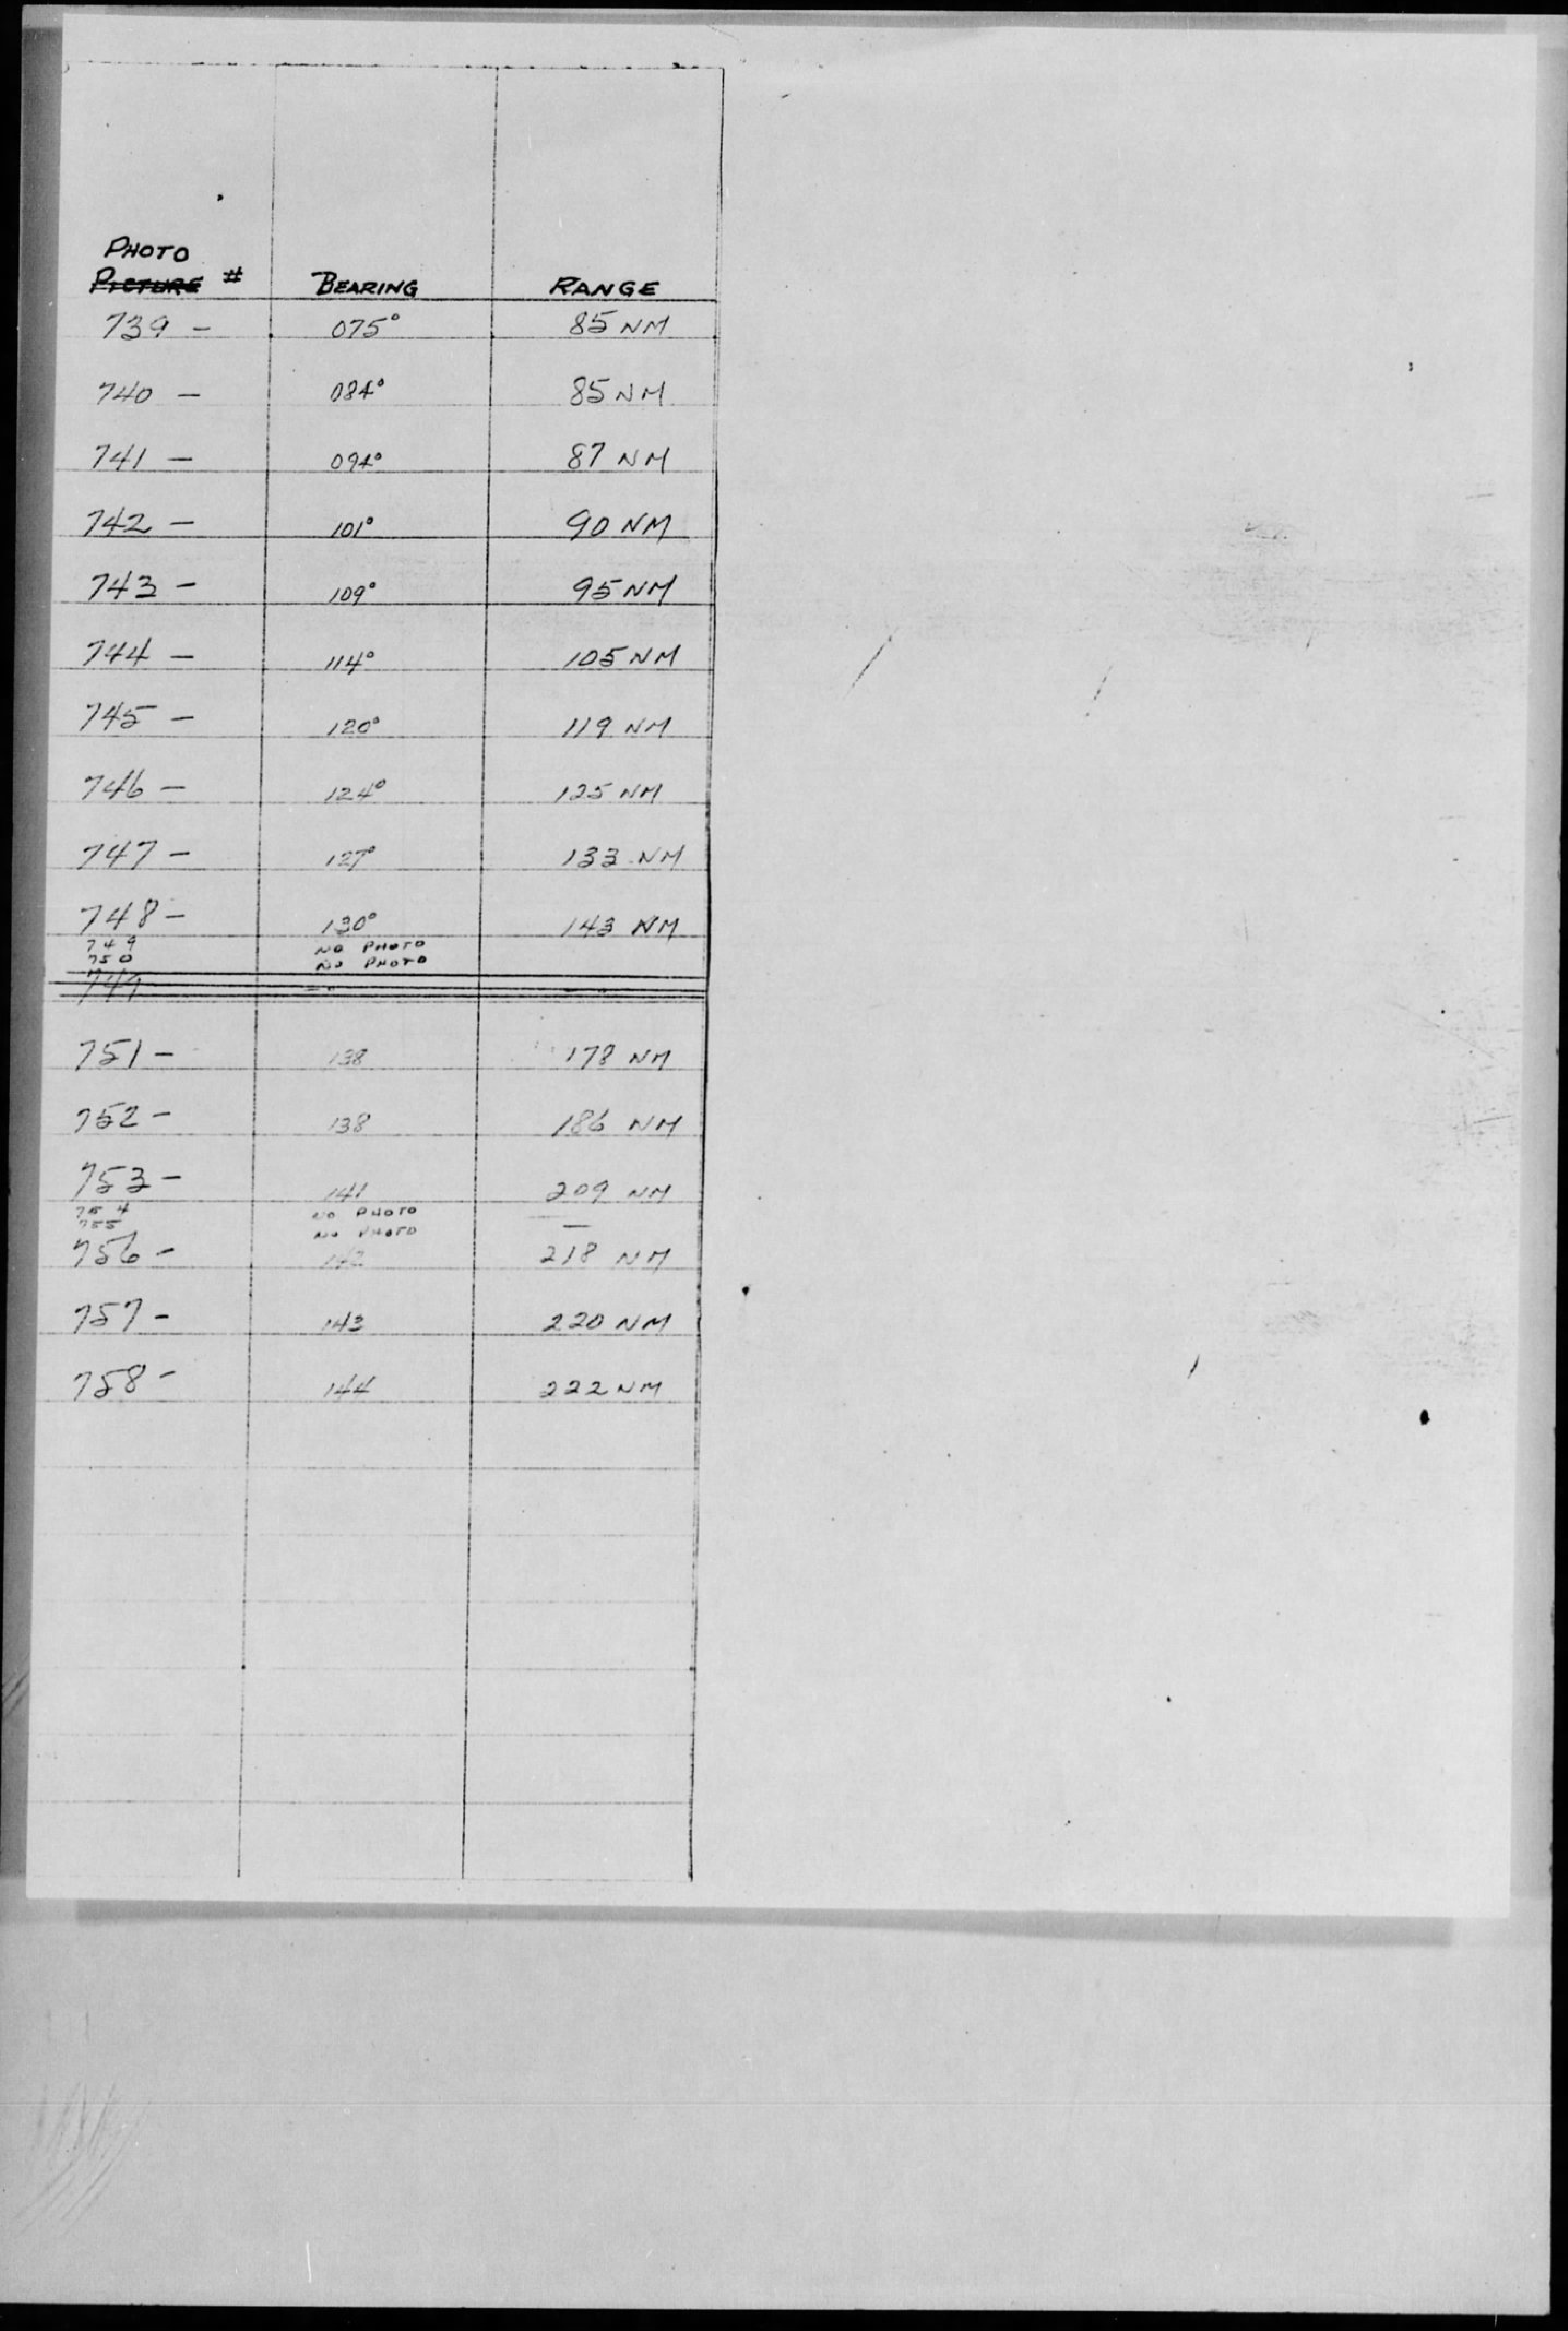 PHOTO
PICTURE # BEARING RANGE
739 — 075° 85 NM
740 — 084° 85 NM
741 — 094° 87 NM
742 — 101° 90 NM
743 — 109° 95 NM
744 — 114° 105 NM
745 — 120° 119 NM
746 — 124° 125 NM
747 — 127° 133 NM
748 — 130° 143 NM
749 NO PHOTO
750 NO PHOTO
751 — 138 178 NM
752 — 138 186 NM
753 — 141 209 NM
754 NO PHOTO
755 NO PHOTO —
756 — 142 218 NM
757 — 143 220 NM
758 — 144 222 NM